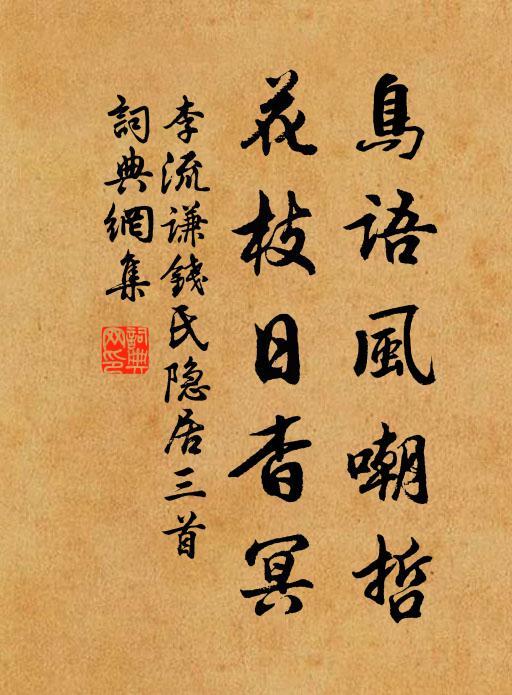 鳥語風嘲哲
花枝日杳冥
李流谦錢氏隐居三首
詞典網集
詞典網印